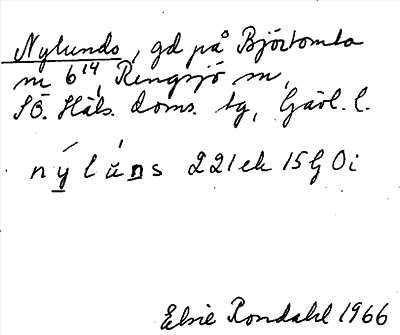 Nylunds, gd på Björtomta
m 6¹⁴, Rengsjö sn,
SÖ. Häls. doms. tg, Gävl. l.
nýlùns 221 ek 15G 0i
Elsie Rondahl 1966